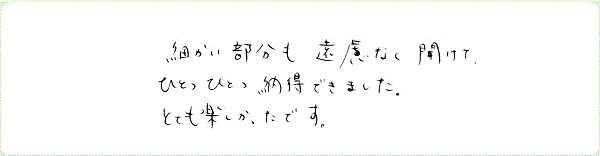 細かい部分も 遠慮なく 聞けて、
ひとつひとつ 納得できました。
とても楽しかったです。